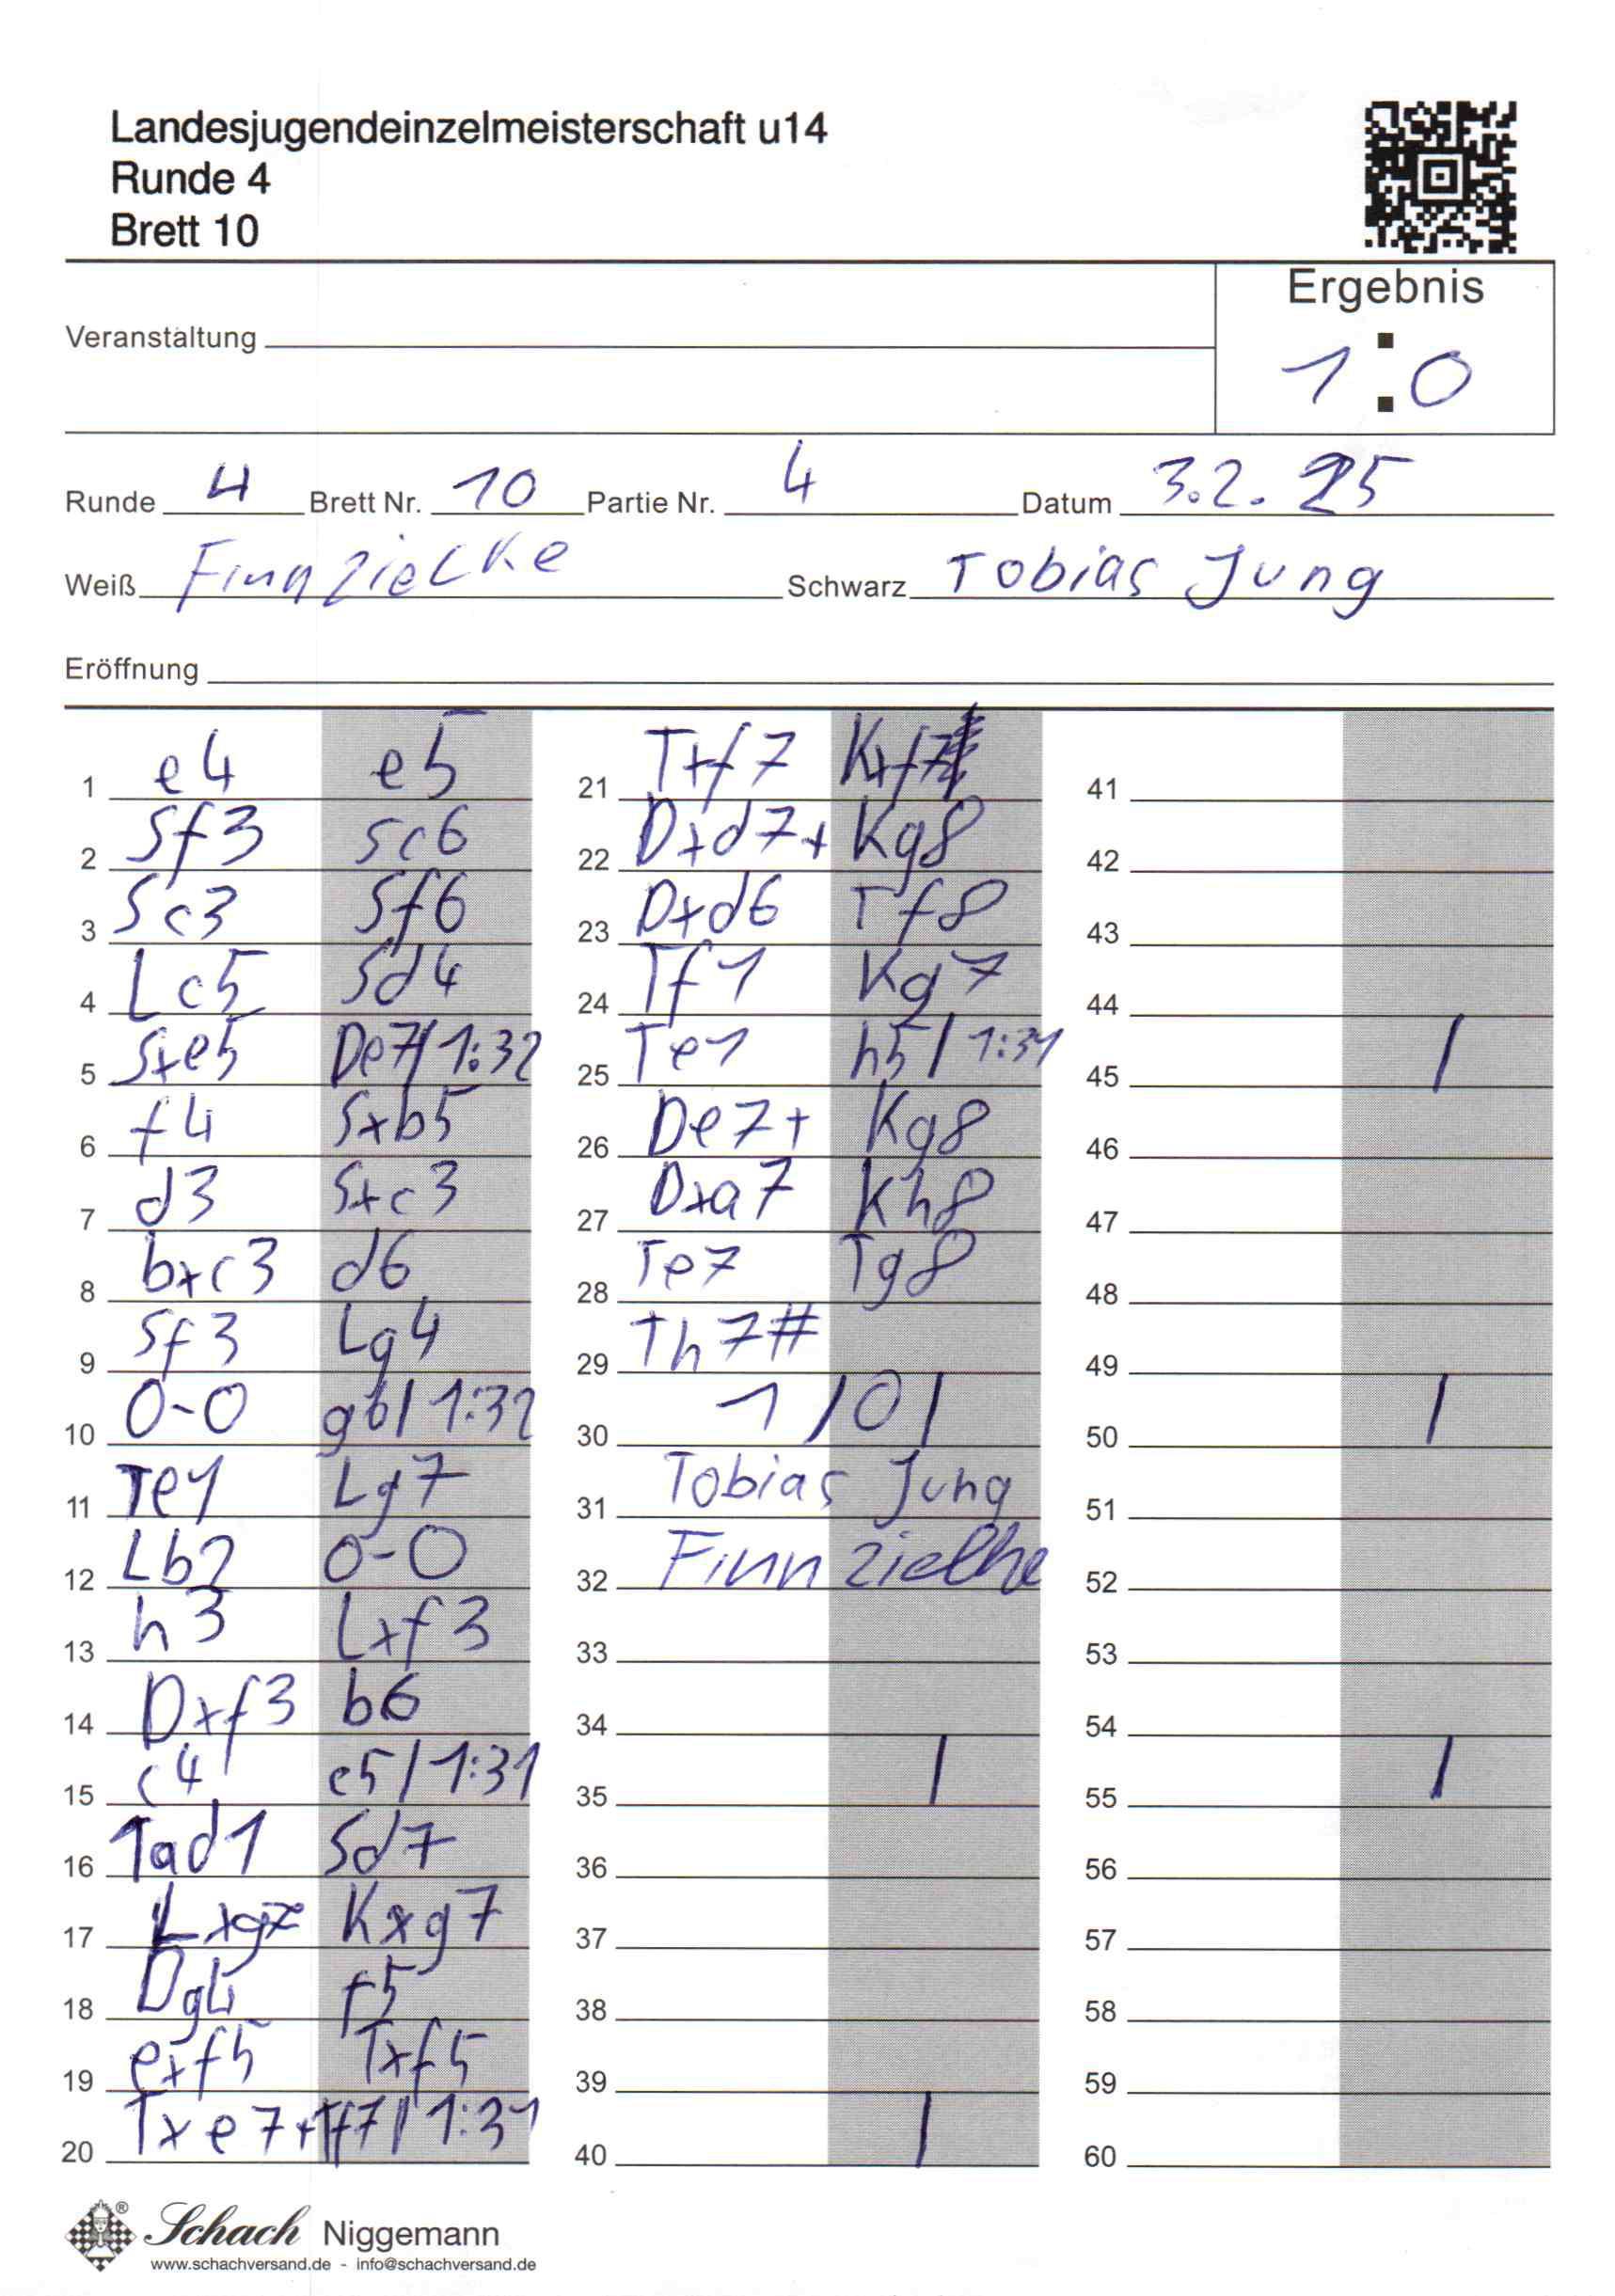 Landesjugendeinzelmeisterschaft u14
Runde 4
Brett 10
Ergebnis
Veranstaltung
1:0
Runde 4 Brett Nr. 10 Partie Nr. 4 Datum 3.2.25
Weiß Finn Zielke Schwarz Tobias Jung
Eröffnung
1 e4 e5
2 Sf3 Sc6
3 Sc3 Sf6
4 Lc5 Sd4
5 Sxe5 De7/1:32
6 f4 Sxb5
7 d3 Sxc3
8 bxc3 d6
9 Sf3 Lg4
10 0-0 g6/1:32
11 Te1 Lg7
12 Lb2 0-0
13 h3 Lxf3
14 Dxf3 b6
15 c4 c5/1:31
16 Tad1 Sd7
17 Lxg7 Kxg7
18 Dg4 f5
19 exf5 Txf5
20 Txe7+ Tf7/1:31
21 Txf7 Kxf7
22 Dxd7+ Kg8
23 Dxd6 Tf8
24 Tf1 Kg7
25 Te1 h5/1:31
26 De7+ Kg8
27 Dxa7 Kh8
28 Te7 Tg8
29 Th7#
30 1/0/
31 Tobias Jung
32 Finn Zielke
33
34
35 /
36
37
38
39
40 /
41
42
43
44
45 /
46
47
48
49
50 /
51
52
53
54
55 /
56
57
58
59
60
® Schach Niggemann
www.schachversand.de - info@schachversand.de